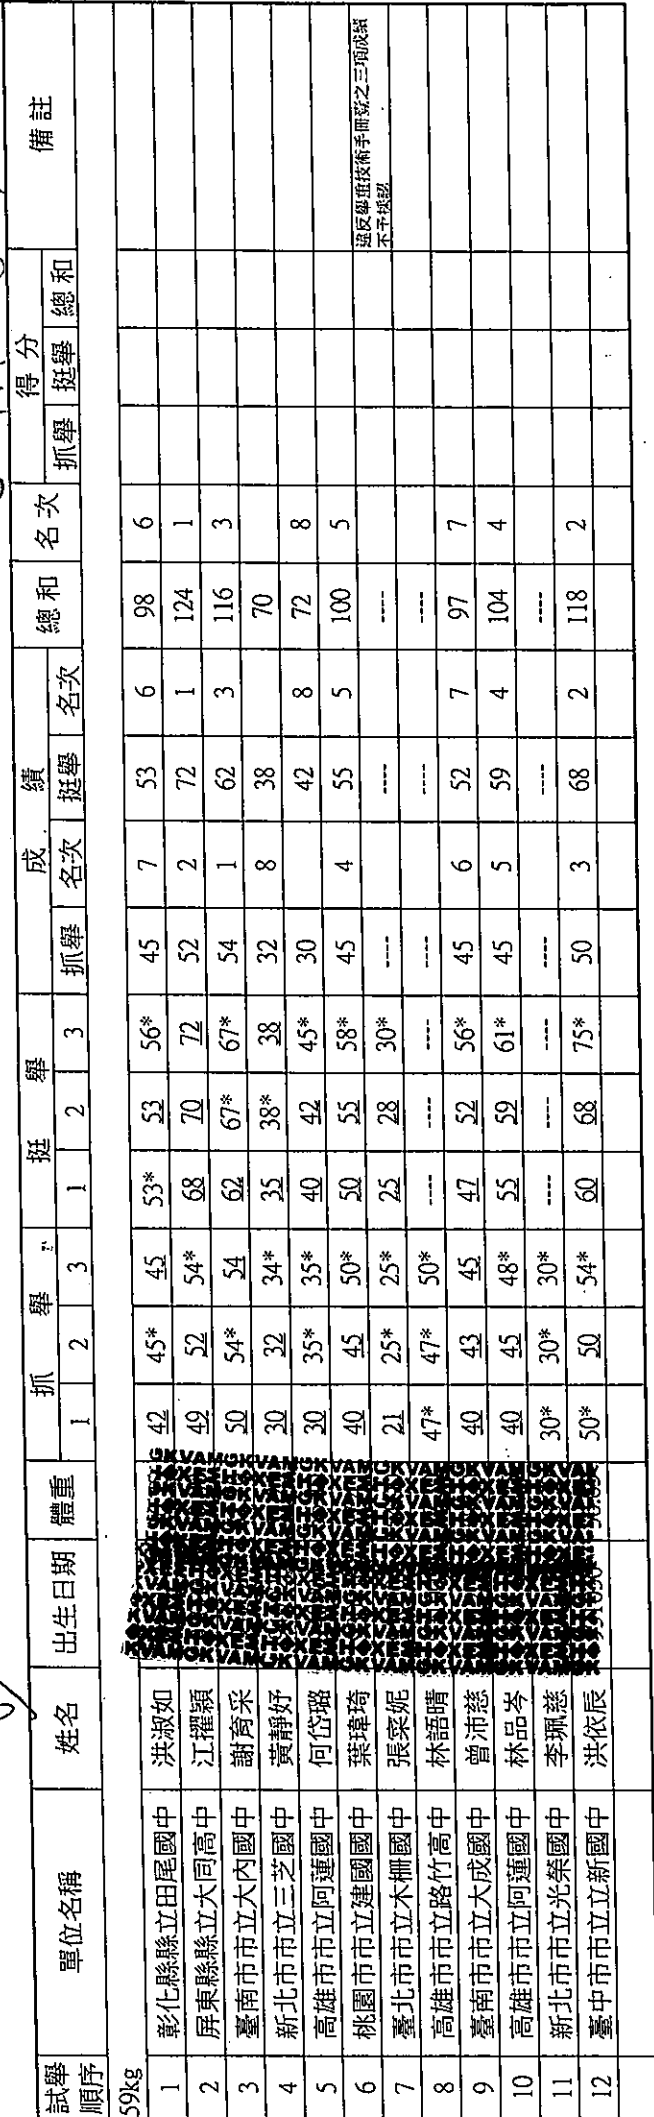 試舉順序 單位名稱 姓名 出生日期 體重 抓舉 挺舉 成績 總和 名次 得分 備註
1 2 3 1 2 3 抓舉 名次 挺舉 名次 抓舉 挺舉 總和
59kg
1 彰化縣縣立田尾國中 洪淑如 42 45* 45 53* 53 56* 45 7 53 6 98 6
2 屏東縣縣立大同高中 江擢穎 49 52 54* 68 70 72 52 2 72 1 124 1
3 臺南市市立大內國中 謝育采 50 54* 54 62 67* 67* 54 1 62 3 116 3
4 新北市市立三芝國中 黃靜妤 30 32 34* 35 38* 38 32 8 38 70
5 高雄市市立阿蓮國中 何岱璐 30 35* 35* 40 42 45* 30 42 8 72 8
6 桃園市市立建國國中 葉瑋琦 40 45 50* 50 55 58* 45 4 55 5 100 5
7 臺北市市立木柵國中 張寀妮 21 25* 25* 25 28 30* ---- ---- ---- 違反舉重技術手冊貳之三項成績不予採認
8 高雄市市立路竹高中 林語晴 47* 47* 50* ---- ---- ---- ---- ---- ----
9 臺南市市立大成國中 曾沛慈 40 43 45 47 52 56* 45 6 52 7 97 7
10 高雄市市立阿蓮國中 林品岑 40 45 48* 55 59 61* 45 5 59 4 104 4
11 新北市市立光榮國中 李珮慈 30* 30* 30* ---- ---- ---- ---- ---- ----
12 臺中市市立立新國中 洪依辰 50* 50 54* 60 68 75* 50 3 68 2 118 2